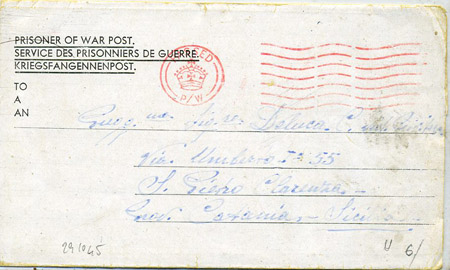 PRISONER OF WAR POST.
SERVICE DES PRISONNIERS DE GUERRE.
KRIEGSFANGENNENPOST.
P/W
TO
A
AN
Deluca
Via Umberto I° 55
S. Pietro Clarenza
Prov. Catania - Sici
291045
6/